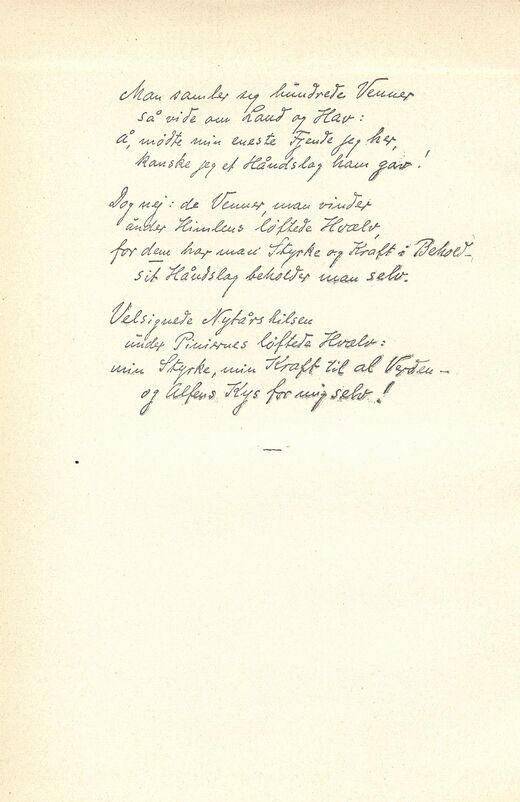 Man samler sig hundrede Venner
så vide om Land og Hav:
å, mødte min eneste Fjende jeg her,
kanske jeg et Håndslag ham gav!
Dog nej: de Venner, man vinder
under Himlens løftede Hvælv,
for dem har man Styrke og Kraft i Behold –
sit Håndslag beholder man selv.
Velsignede Nytårshilsen
under Piniernes løftede Hvælv:
min Styrke, min Kraft til al Verden –
og Alfens Kys for mig selv!